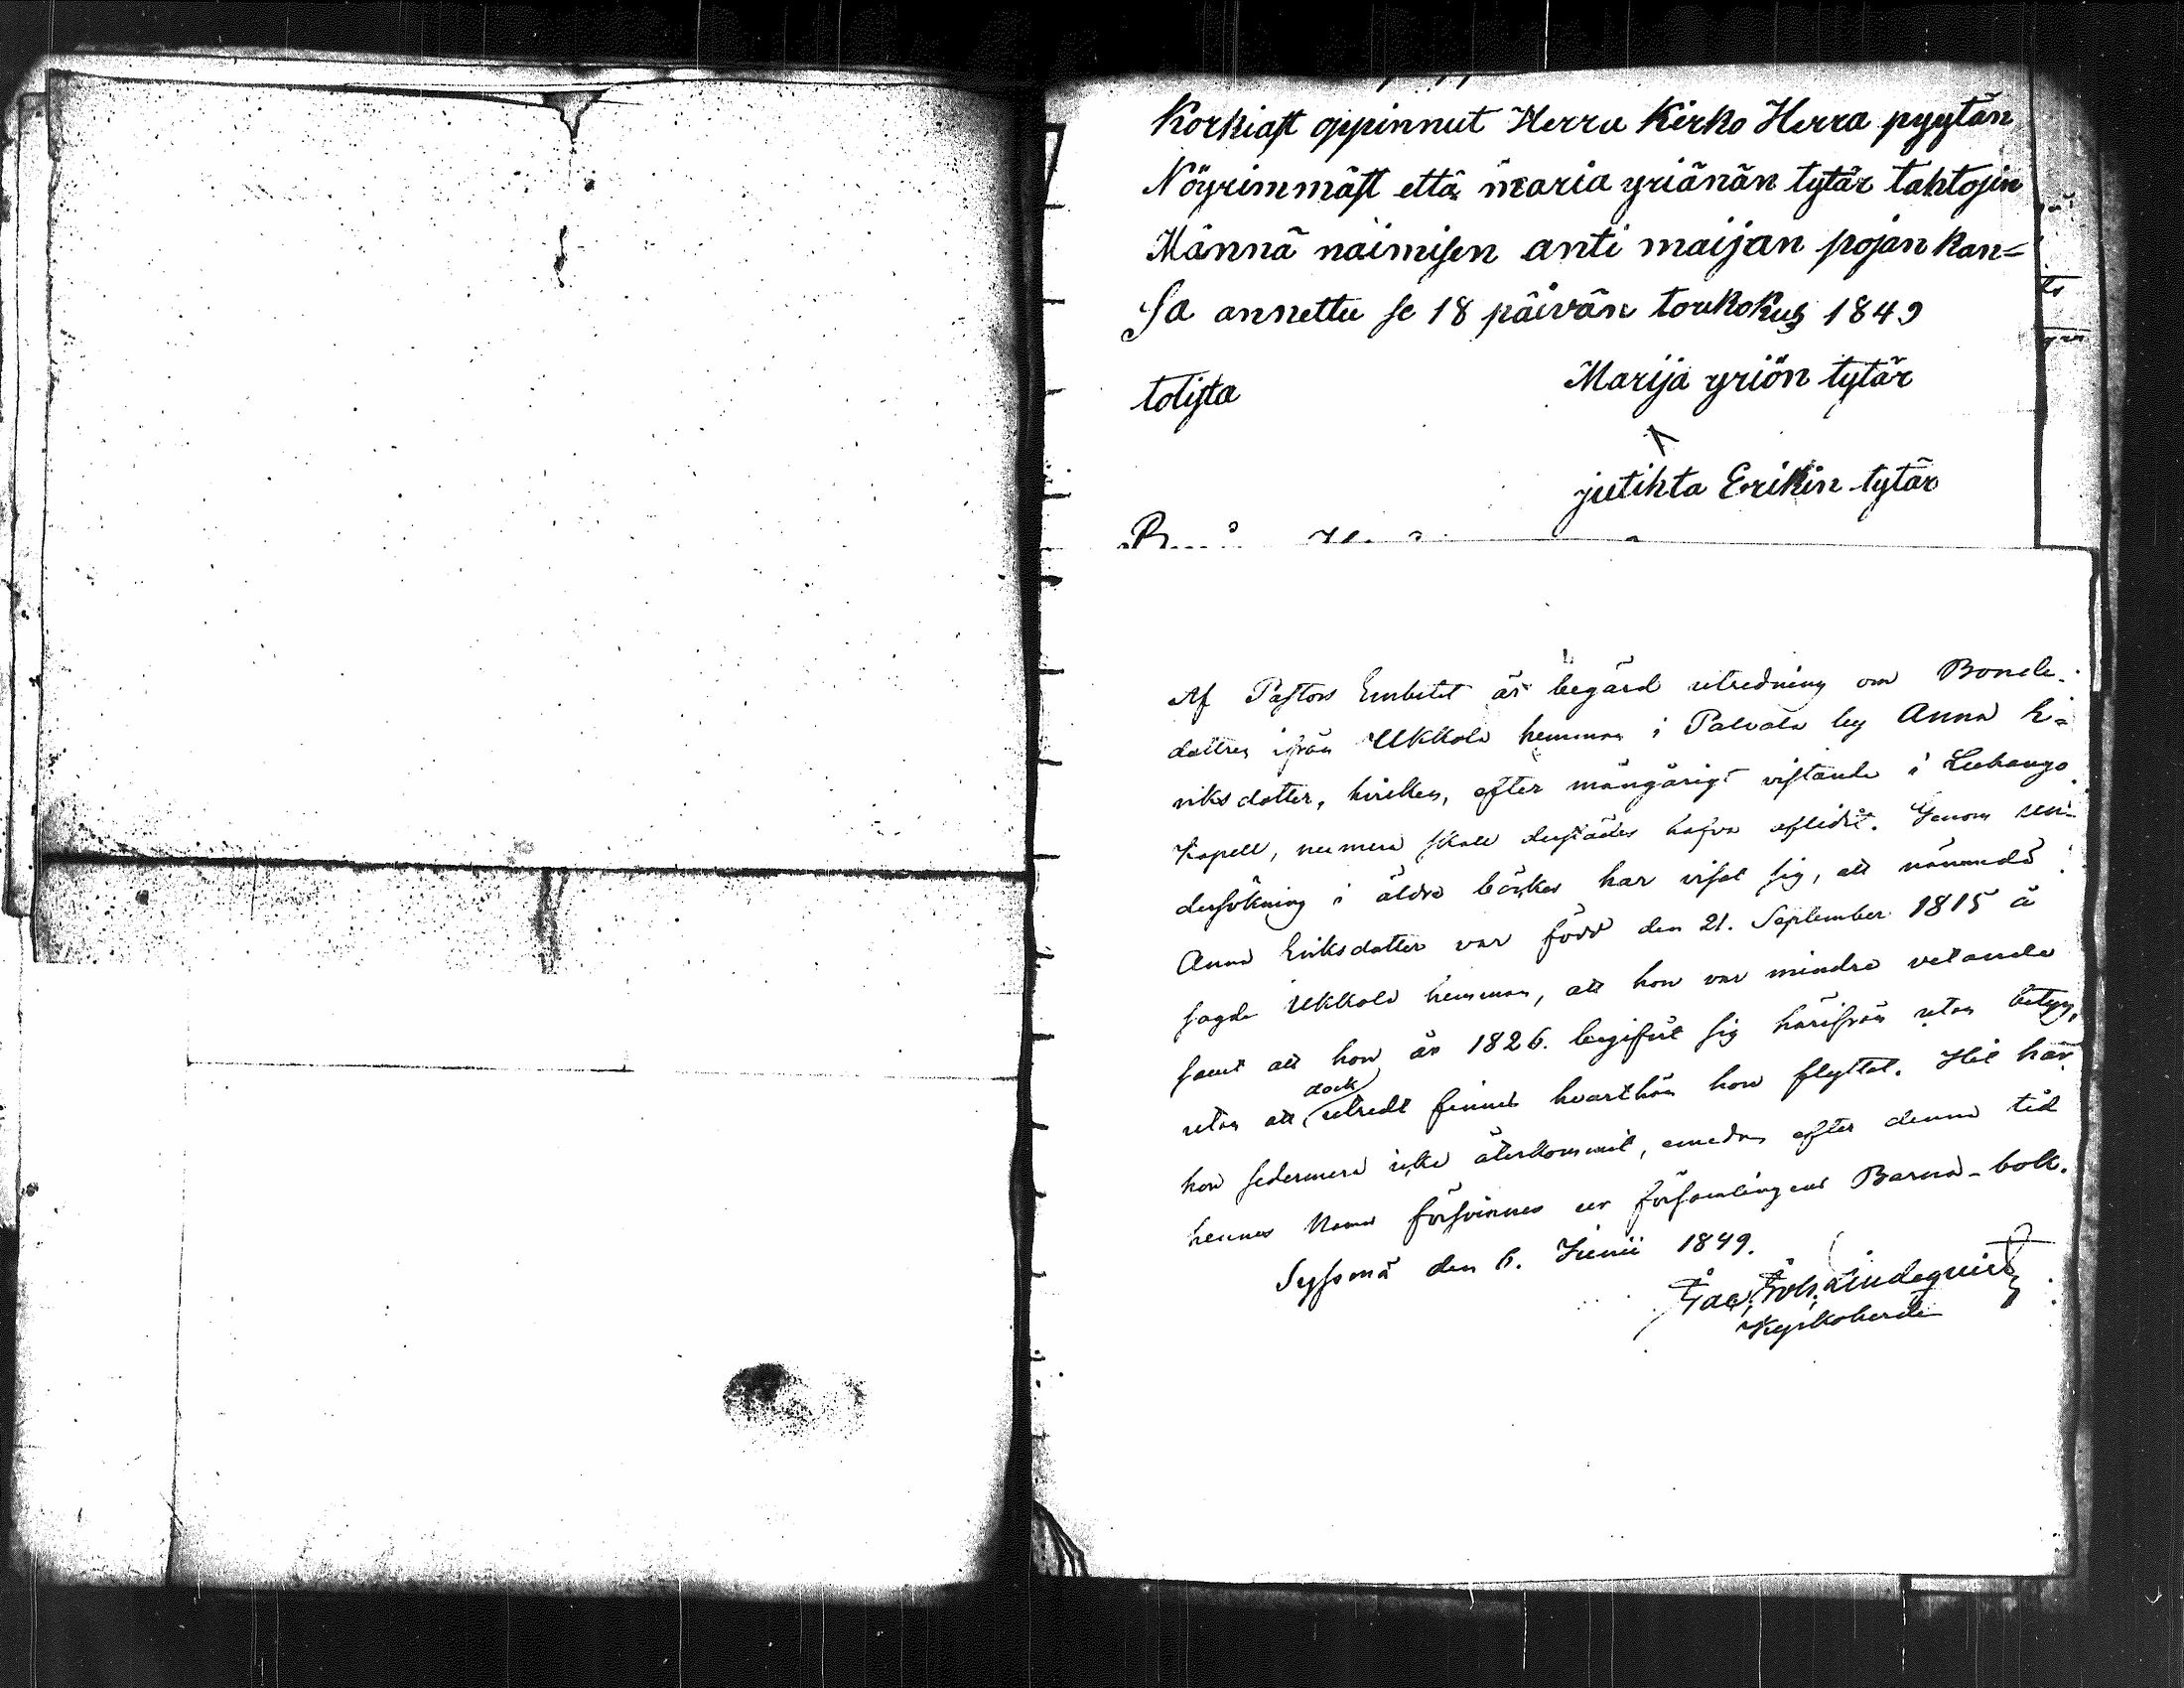 Korkiast oppinnut Herra Kirko Herra pyytän
Nöyrimmäst että maria yriänän tytär tahtosin
Männä naimisen anti maijan pojan kan=
sa annettu se 18 päivän toukokus 1849
totista
Marija yriön tytär
jutihta Erikin tytär
Af Pastors Embetet är begärd utredning om Bonde-
dottren ifrån Ukkola hemman i Palvala by Anna E=
riksdotter, hvilken, efter mångårigt vistande i Luhango
Kapell, numera skall derstädes hafva aflidit. Genom un-
dersökning i äldre böcker har visat sig, att nämnda
Anna Eriksdotter var född den 21. September 1815 å
sagde Ukkola hemman, att hon var mindre vetande
samt att hon år 1826. begifvit sig härifrån utan betyg,
utan att dock utredt finnes hvarthän hon flyttat. Hit har
hon sedermera icke återkommit, emedan efter denna tid
hennes Namn försvinner ur församlingens Barna-bok.
Syssmä den 6. Junii 1849.
Jac. Joh. Lindequist
Kyrkoherde